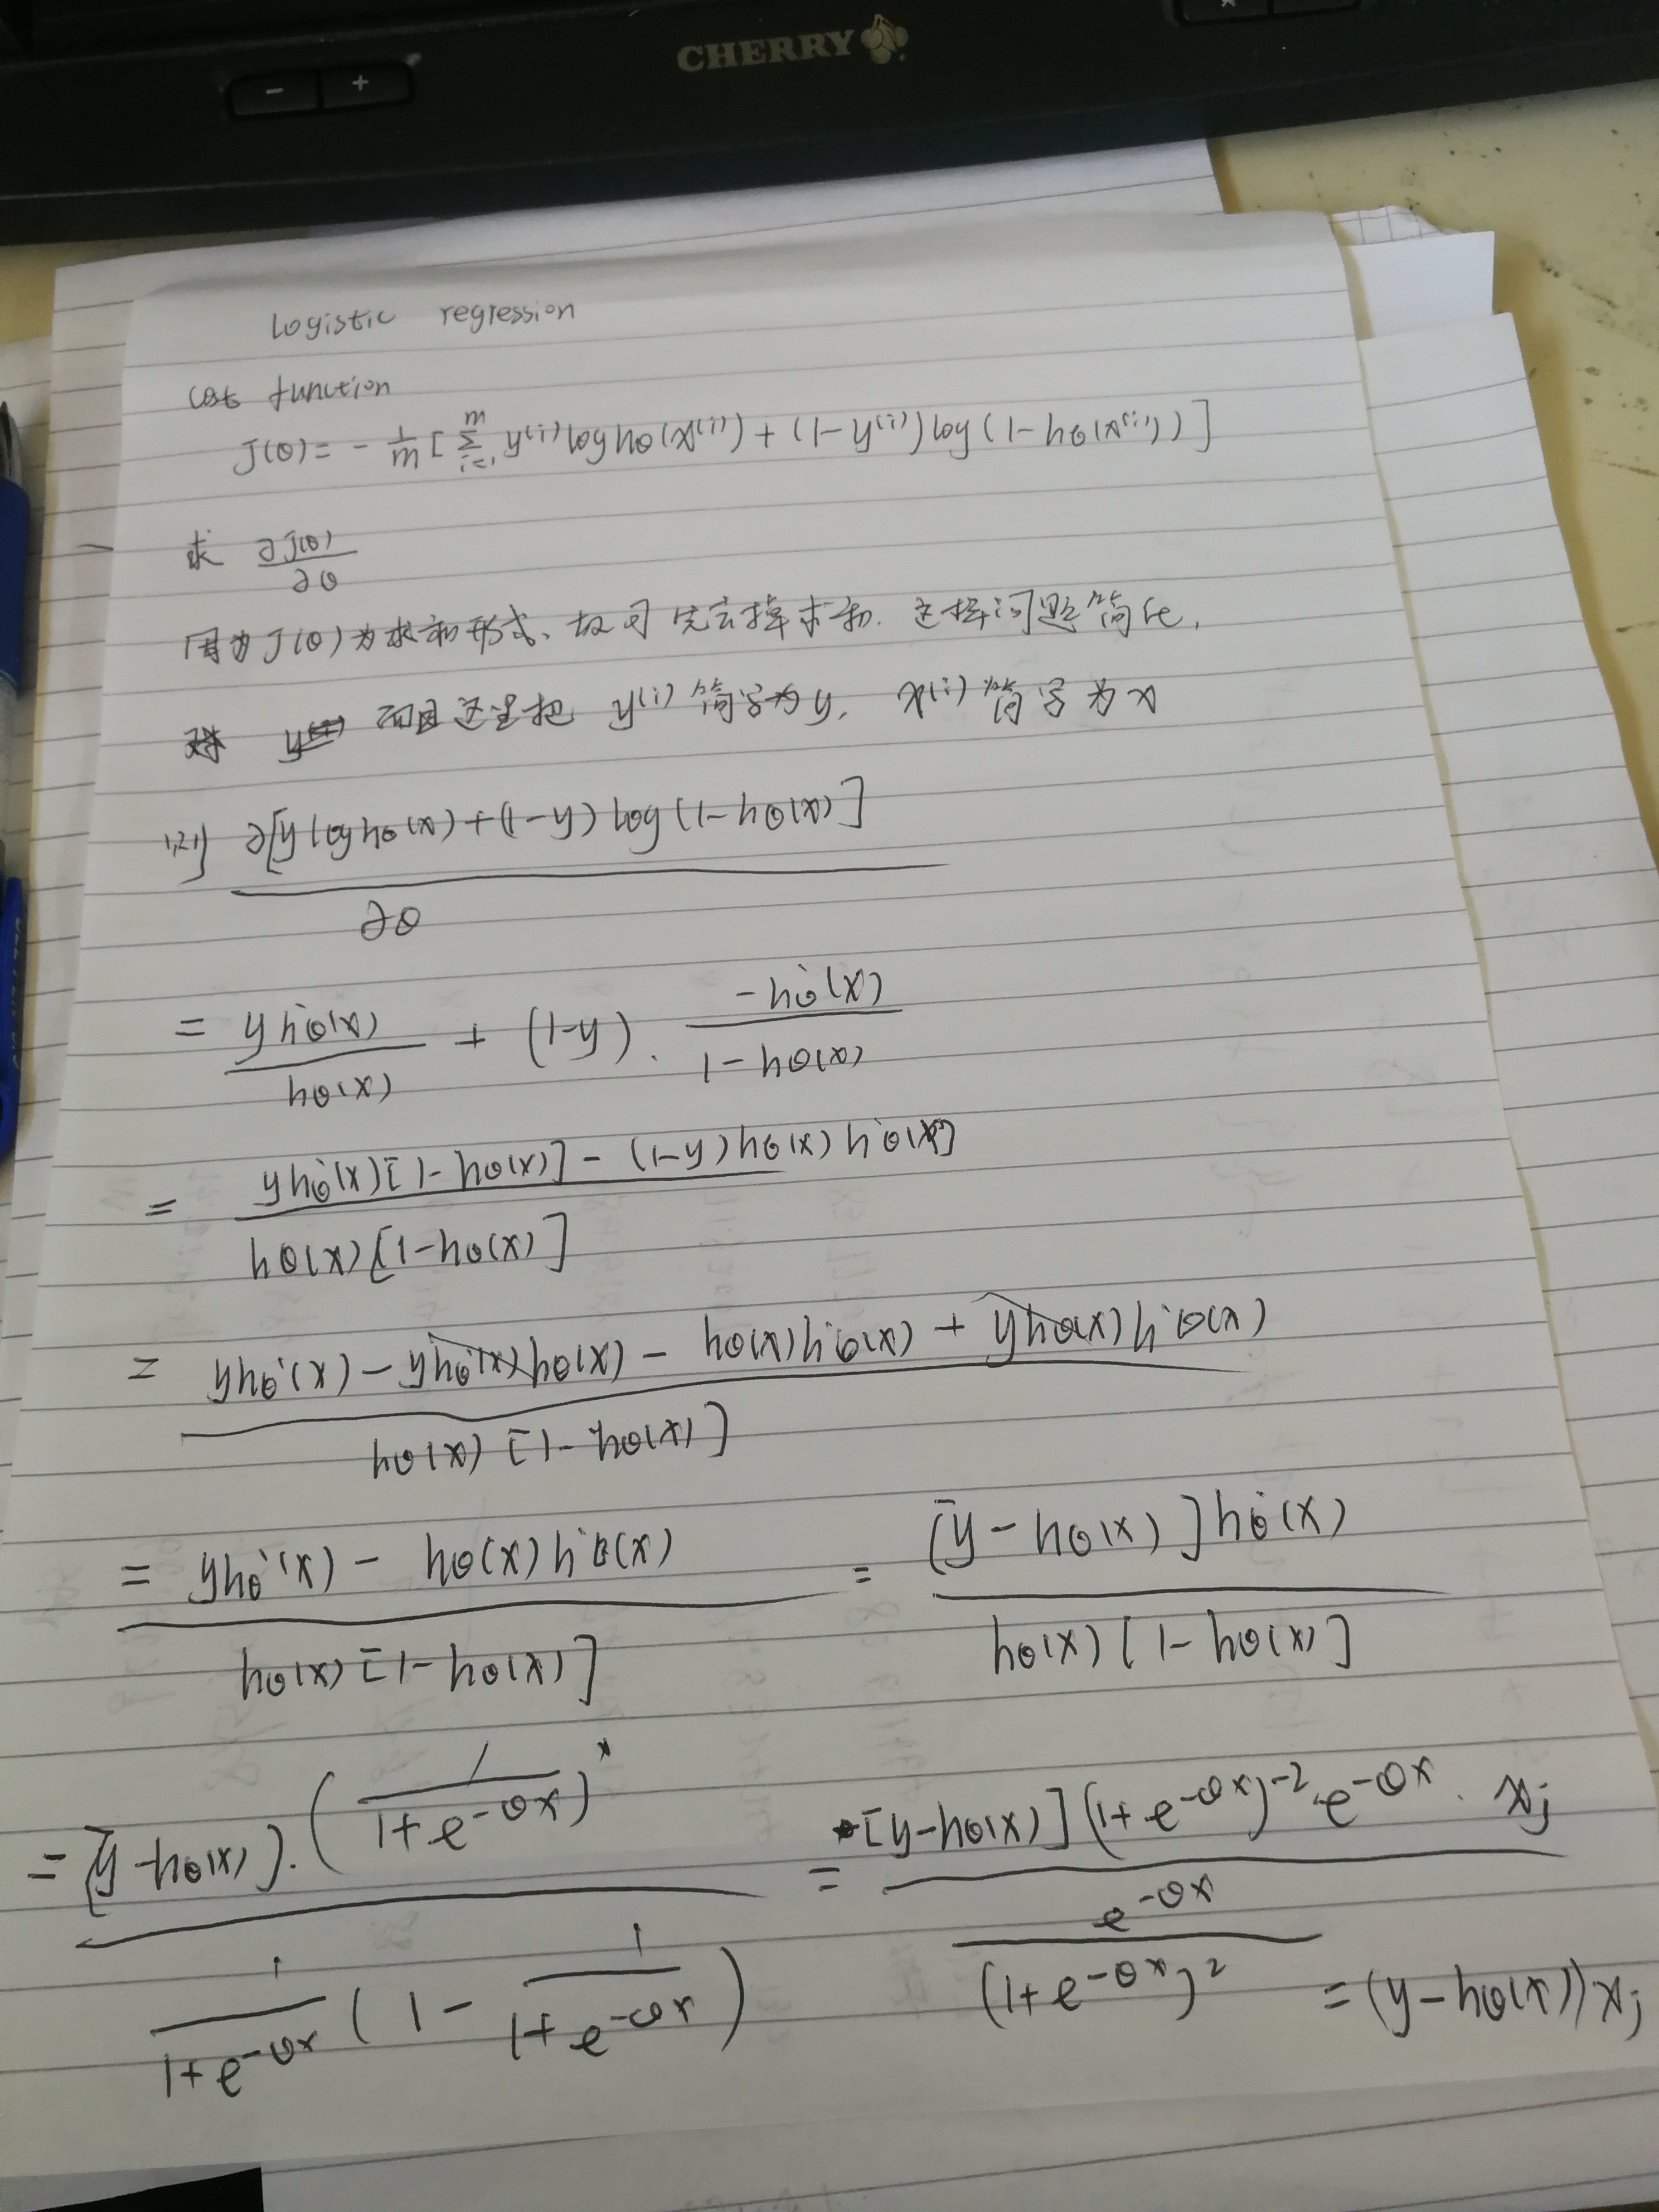 CHERRY
- +
Logistic regression
cost function
J(θ) = - 1/m [ Σ_{i=1}^{m} y^(i) log hθ(x^(i)) + (1-y^(i)) log (1-hθ(x^(i))) ]
求 ∂J(θ)/∂θ
因为 J(θ) 为求和形式、故可先去掉求和. 这样问题简化,
而且这里把 y^(i) 简写为 y, x^(i) 简写为 x
则 ∂[y log hθ(x) + (1-y) log (1-hθ(x)] / ∂θ
= y hθ'(x) / hθ(x) + (1-y) · -hθ'(x) / 1-hθ(x)
= yhθ'(x)[1-hθ(x)] - (1-y)hθ(x)hθ'(x) / hθ(x)[1-hθ(x)]
= yhθ'(x) - yhθ'(x)hθ(x) - hθ(x)h'θ(x) + yhθ(x)h'θ(x) / hθ(x)[1-hθ(x)]
= yhθ'(x) - hθ(x)h'θ(x) / hθ(x)[1-hθ(x)] = [y-hθ(x)]hθ'(x) / hθ(x)[1-hθ(x)]
= [y-hθ(x)]·(1/(1+e^-θx))' / 1/(1+e^-θx) (1 - 1/(1+e^-θx)) = [y-hθ(x)](1+e^-θx)^-2 · e^-θx · xj / e^-θx/(1+e^-θx)^2 = (y-hθ(x))xj